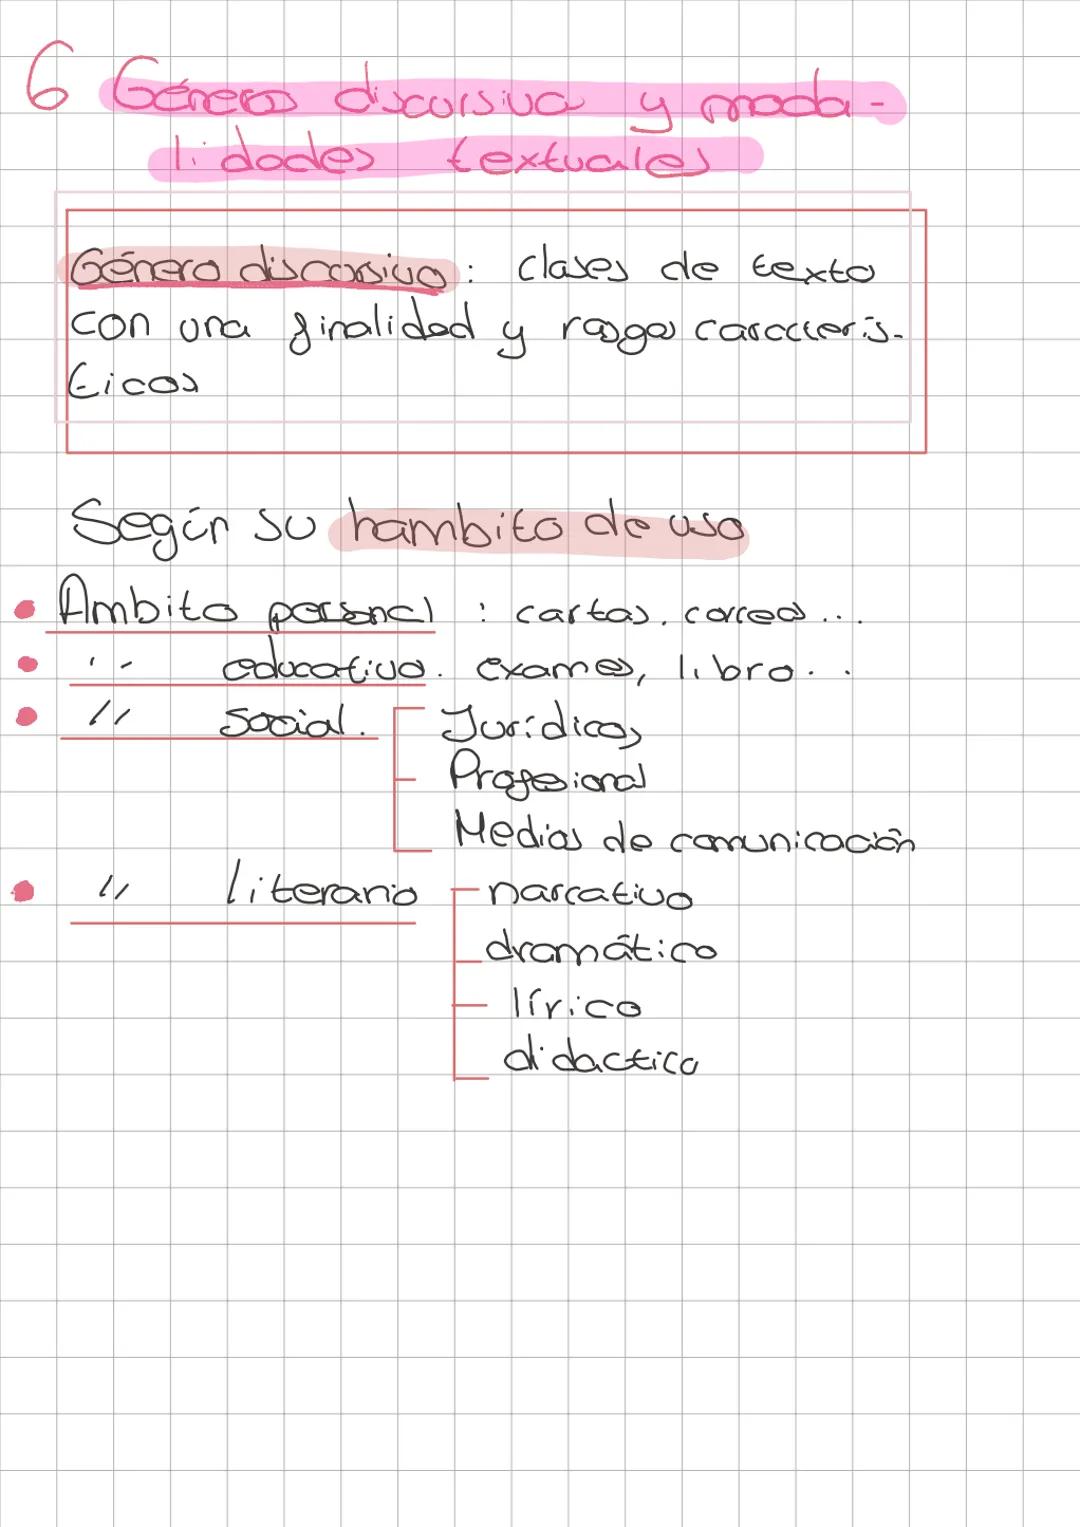 6 Géneros discursivos y moda-
lidades textuales
Género discursivo: clases de texto
con una finalidad y rasgos caracterís-
ticos
Según su hambito de uso
Ambito personal : cartas, correos...
'' educativo. exames, libro...
// social. Jurídicos
Profesional
Medios de comunicación
// literario narrativo
dramático
lírico
didactico